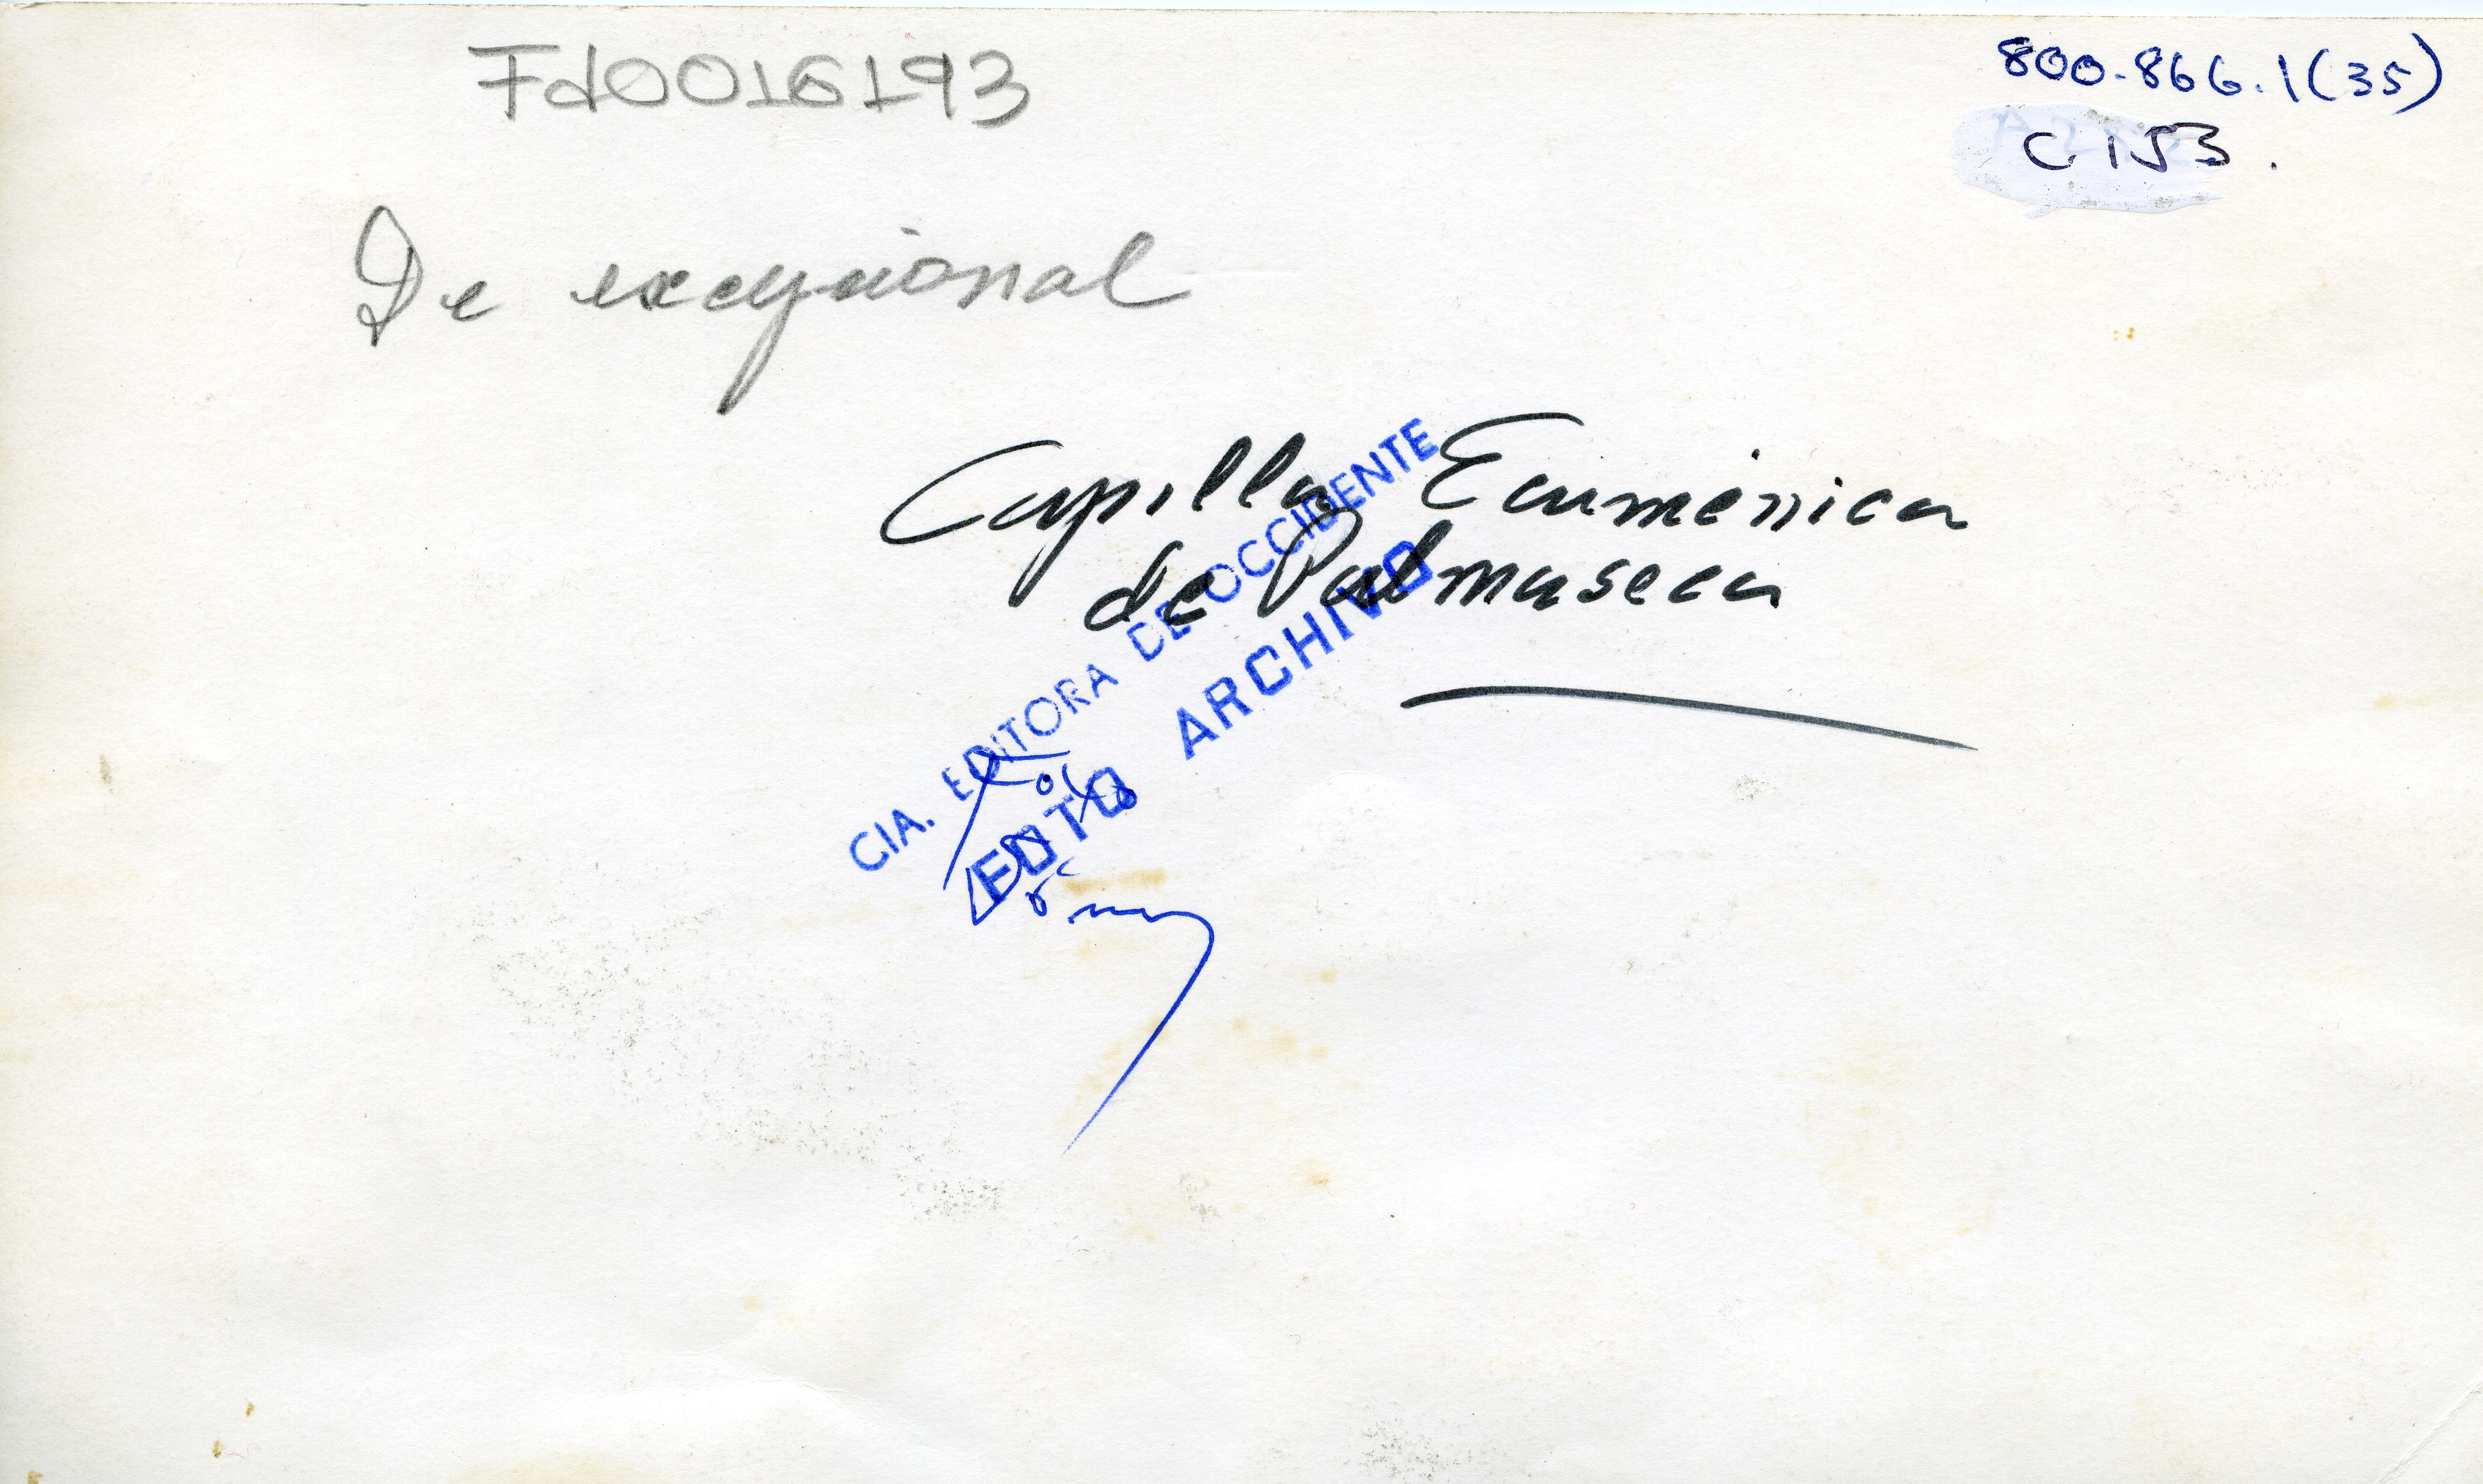 Fd0016193
800-866.1(35)
C153.
De excepcional
Capilla Ecuménica
de Palmaseca
CIA. EDITORA DE OCCIDENTE
FOTO ARCHIVO